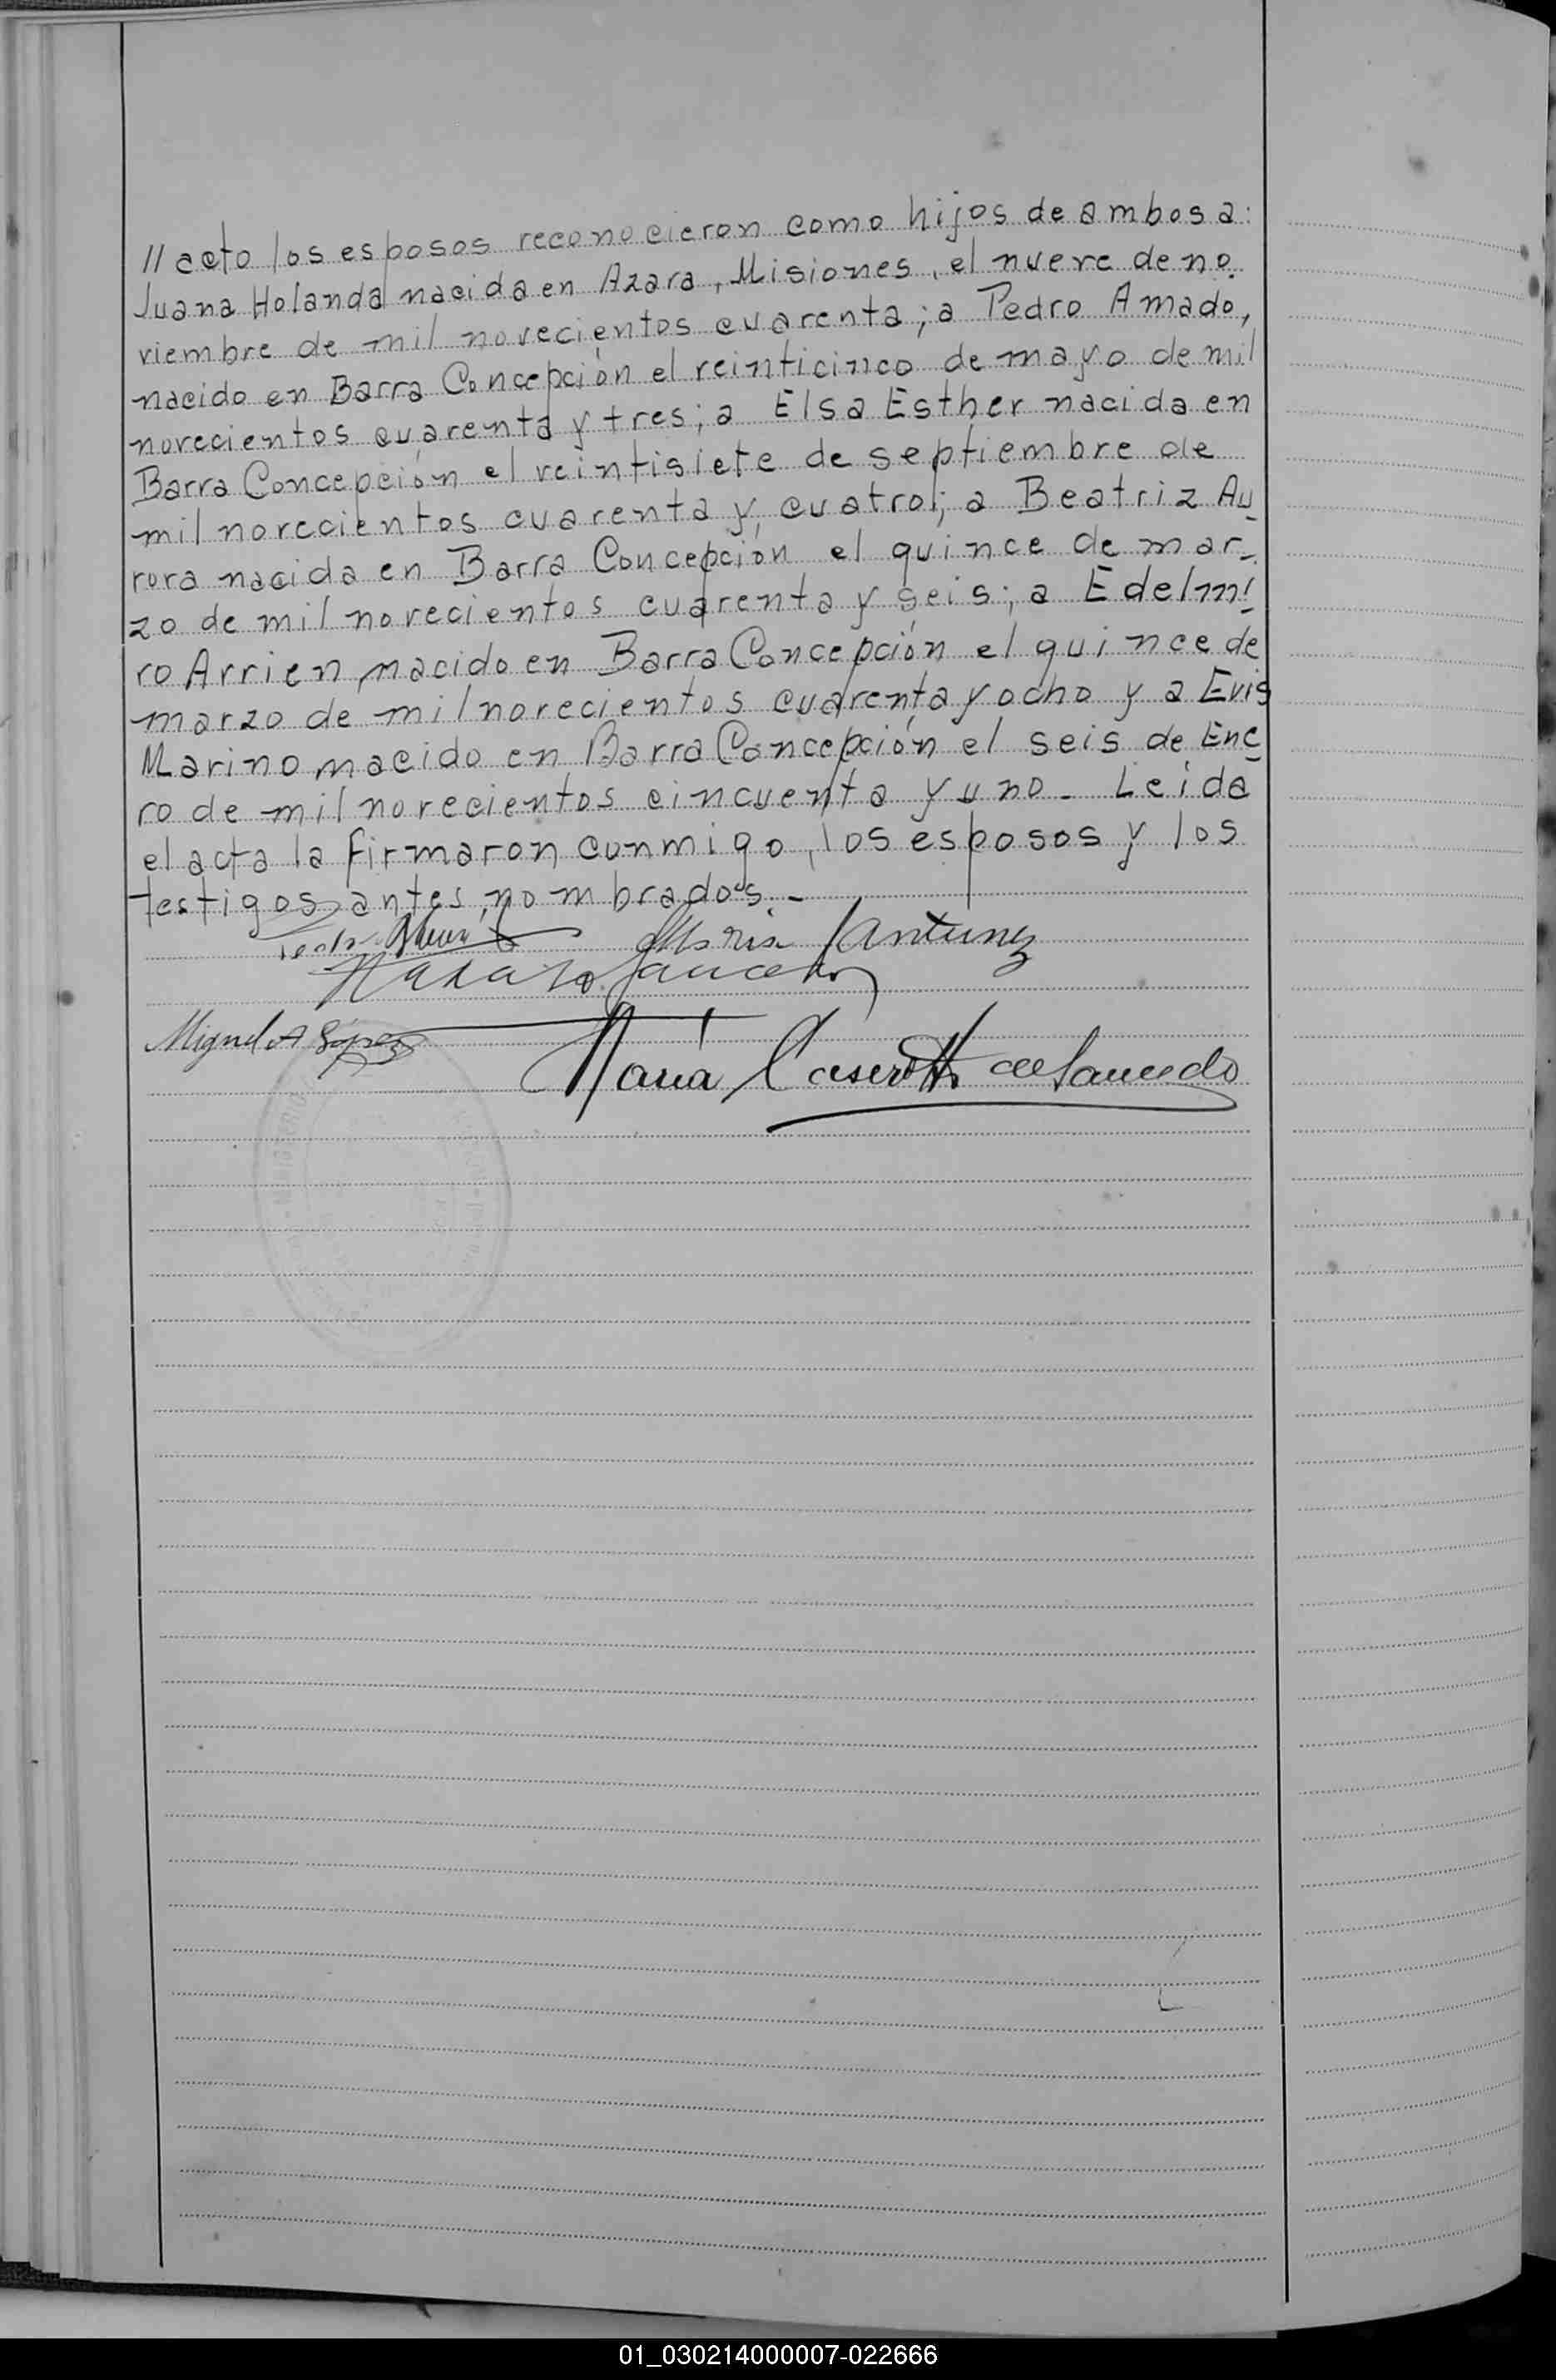 // acto los esposos reconocieron como hijos de ambos a:
Juana Holanda nacida en Azara, Misiones, el nueve de no.
viembre de mil novecientos cuarenta; a Pedro Amado,
nacido en Barra Concepción el veinticinco de mayo de mil
novecientos cuarenta y tres; a Elsa Esther nacida en
Barra Concepción el veintisiete de septiembre de
mil novecientos cuarenta y cuatro; a Beatriz Au
rora nacida en Barra Concepción el quince de mar-
zo de mil novecientos cuarenta y seis; a Edelmi
ro Arrien, nacido en Barra Concepción el quince de
marzo de mil novecientos cuarenta y ocho y a Evis
Marino nacido en Barra Concepción el seis de Ene
ro de mil novecientos cincuenta y uno. Leída
el acta la firmaron conmigo, los esposos y los
testigos antes nombrados.-
Maria Antunez
Miguel A López
Maria Caserotto de Saucedo
01_030214000007-022666